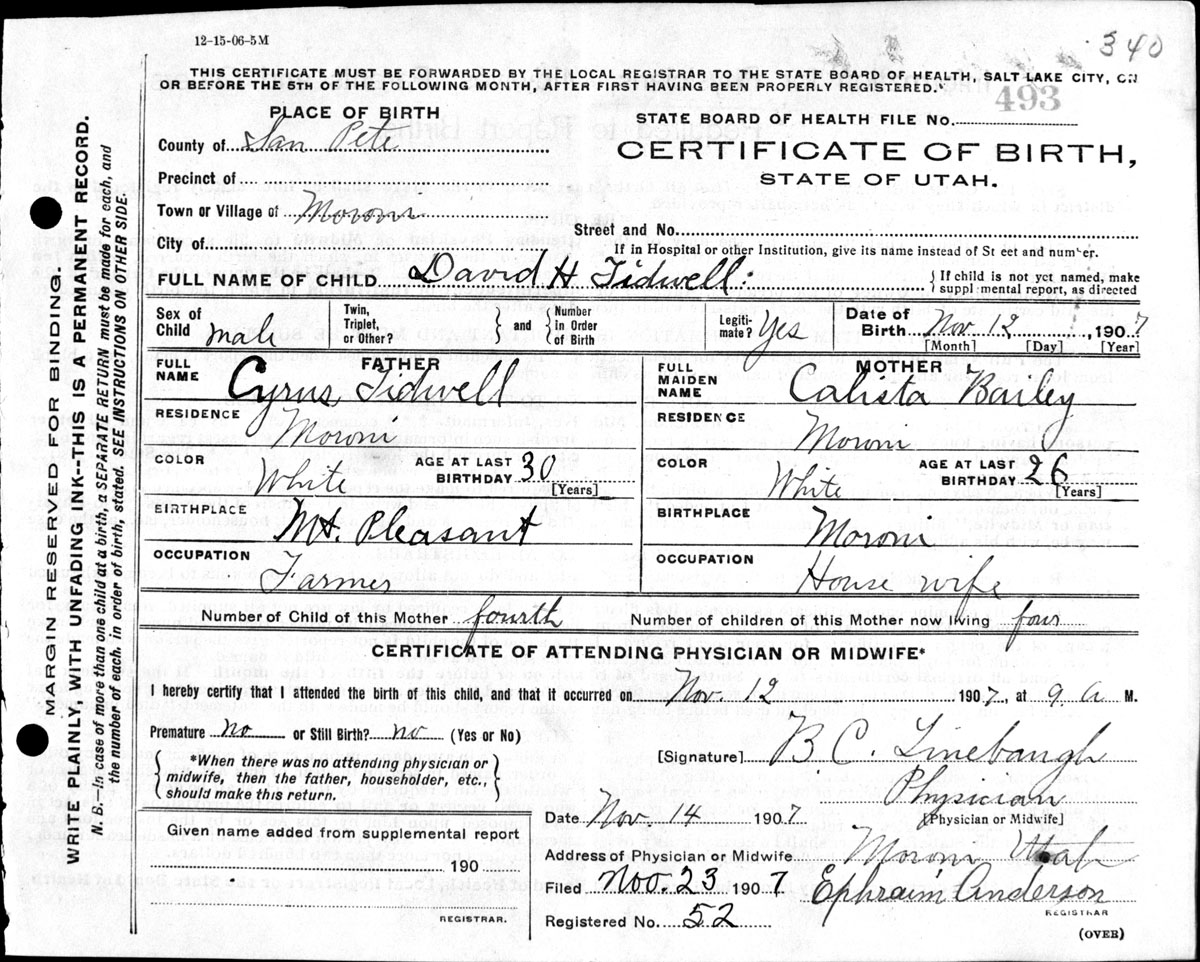 12-15-06-5M
340
THIS CERTIFICATE MUST BE FORWARDED BY THE LOCAL REGISTRAR TO THE STATE BOARD OF HEALTH, SALT LAKE CITY, ON
OR BEFORE THE 5TH OF THE FOLLOWING MONTH, AFTER FIRST HAVING BEEN PROPERLY REGISTERED.
493
PLACE OF BIRTH
STATE BOARD OF HEALTH FILE No.
County of San Pete
CERTIFICATE OF BIRTH,
STATE OF UTAH.
Precinct of
Town or Village of Moroni
Street and No.
City of
If in Hospital or other Institution, give its name instead of St eet and number.
FULL NAME OF CHILD David H Tidwell:
{ If child is not yet named, make
suppl mental report, as directed
Sex of Child male
Twin, Triplet, or Other? } and { Number in Order of Birth
Legiti-mate? Yes
Date of Birth Nov. 12, 1907
[Month] [Day] [Year]
FATHER
FULL NAME Cyrus Tidwell
RESIDENCE Moroni
COLOR White
AGE AT LAST BIRTHDAY 30 [Years]
BIRTHPLACE Mt. Pleasant
OCCUPATION Farmer
MOTHER
FULL MAIDEN NAME Calista Bailey
RESIDENCE Moroni
COLOR White
AGE AT LAST BIRTHDAY 26 [Years]
BIRTHPLACE Moroni
OCCUPATION House wife
Number of Child of this Mother fourth
Number of children of this Mother now living four
CERTIFICATE OF ATTENDING PHYSICIAN OR MIDWIFE*
I hereby certify that I attended the birth of this child, and that it occurred on Nov. 12 1907, at 9 a M.
Premature no or Still Birth? no (Yes or No)
{ *When there was no attending physician or
midwife, then the father, householder, etc.,
should make this return. }
[Signature] B C. Linebaugh
Physician
[Physician or Midwife]
Date Nov. 14 1907
Given name added from supplemental report
190
REGISTRAR.
Address of Physician or Midwife Moroni Utah
Filed Nov. 23 1907 Ephraim Anderson
REGISTRAR
Registered No. 52
(OVER)
MARGIN RESERVED FOR BINDING.
WRITE PLAINLY, WITH UNFADING INK--THIS IS A PERMANENT RECORD.
N. B.—In case of more than one child at a birth, a SEPARATE RETURN must be made for each, and
the number of each, in order of birth, stated. SEE INSTRUCTIONS ON OTHER SIDE.